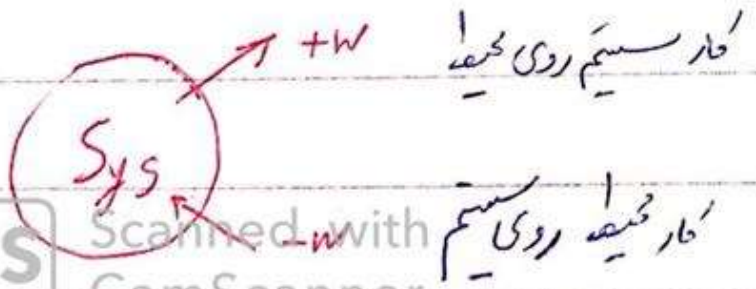 +W کار سیستم روی محیط
Sys
-W کار محیط روی سیستم
Scanned with
CamScanner